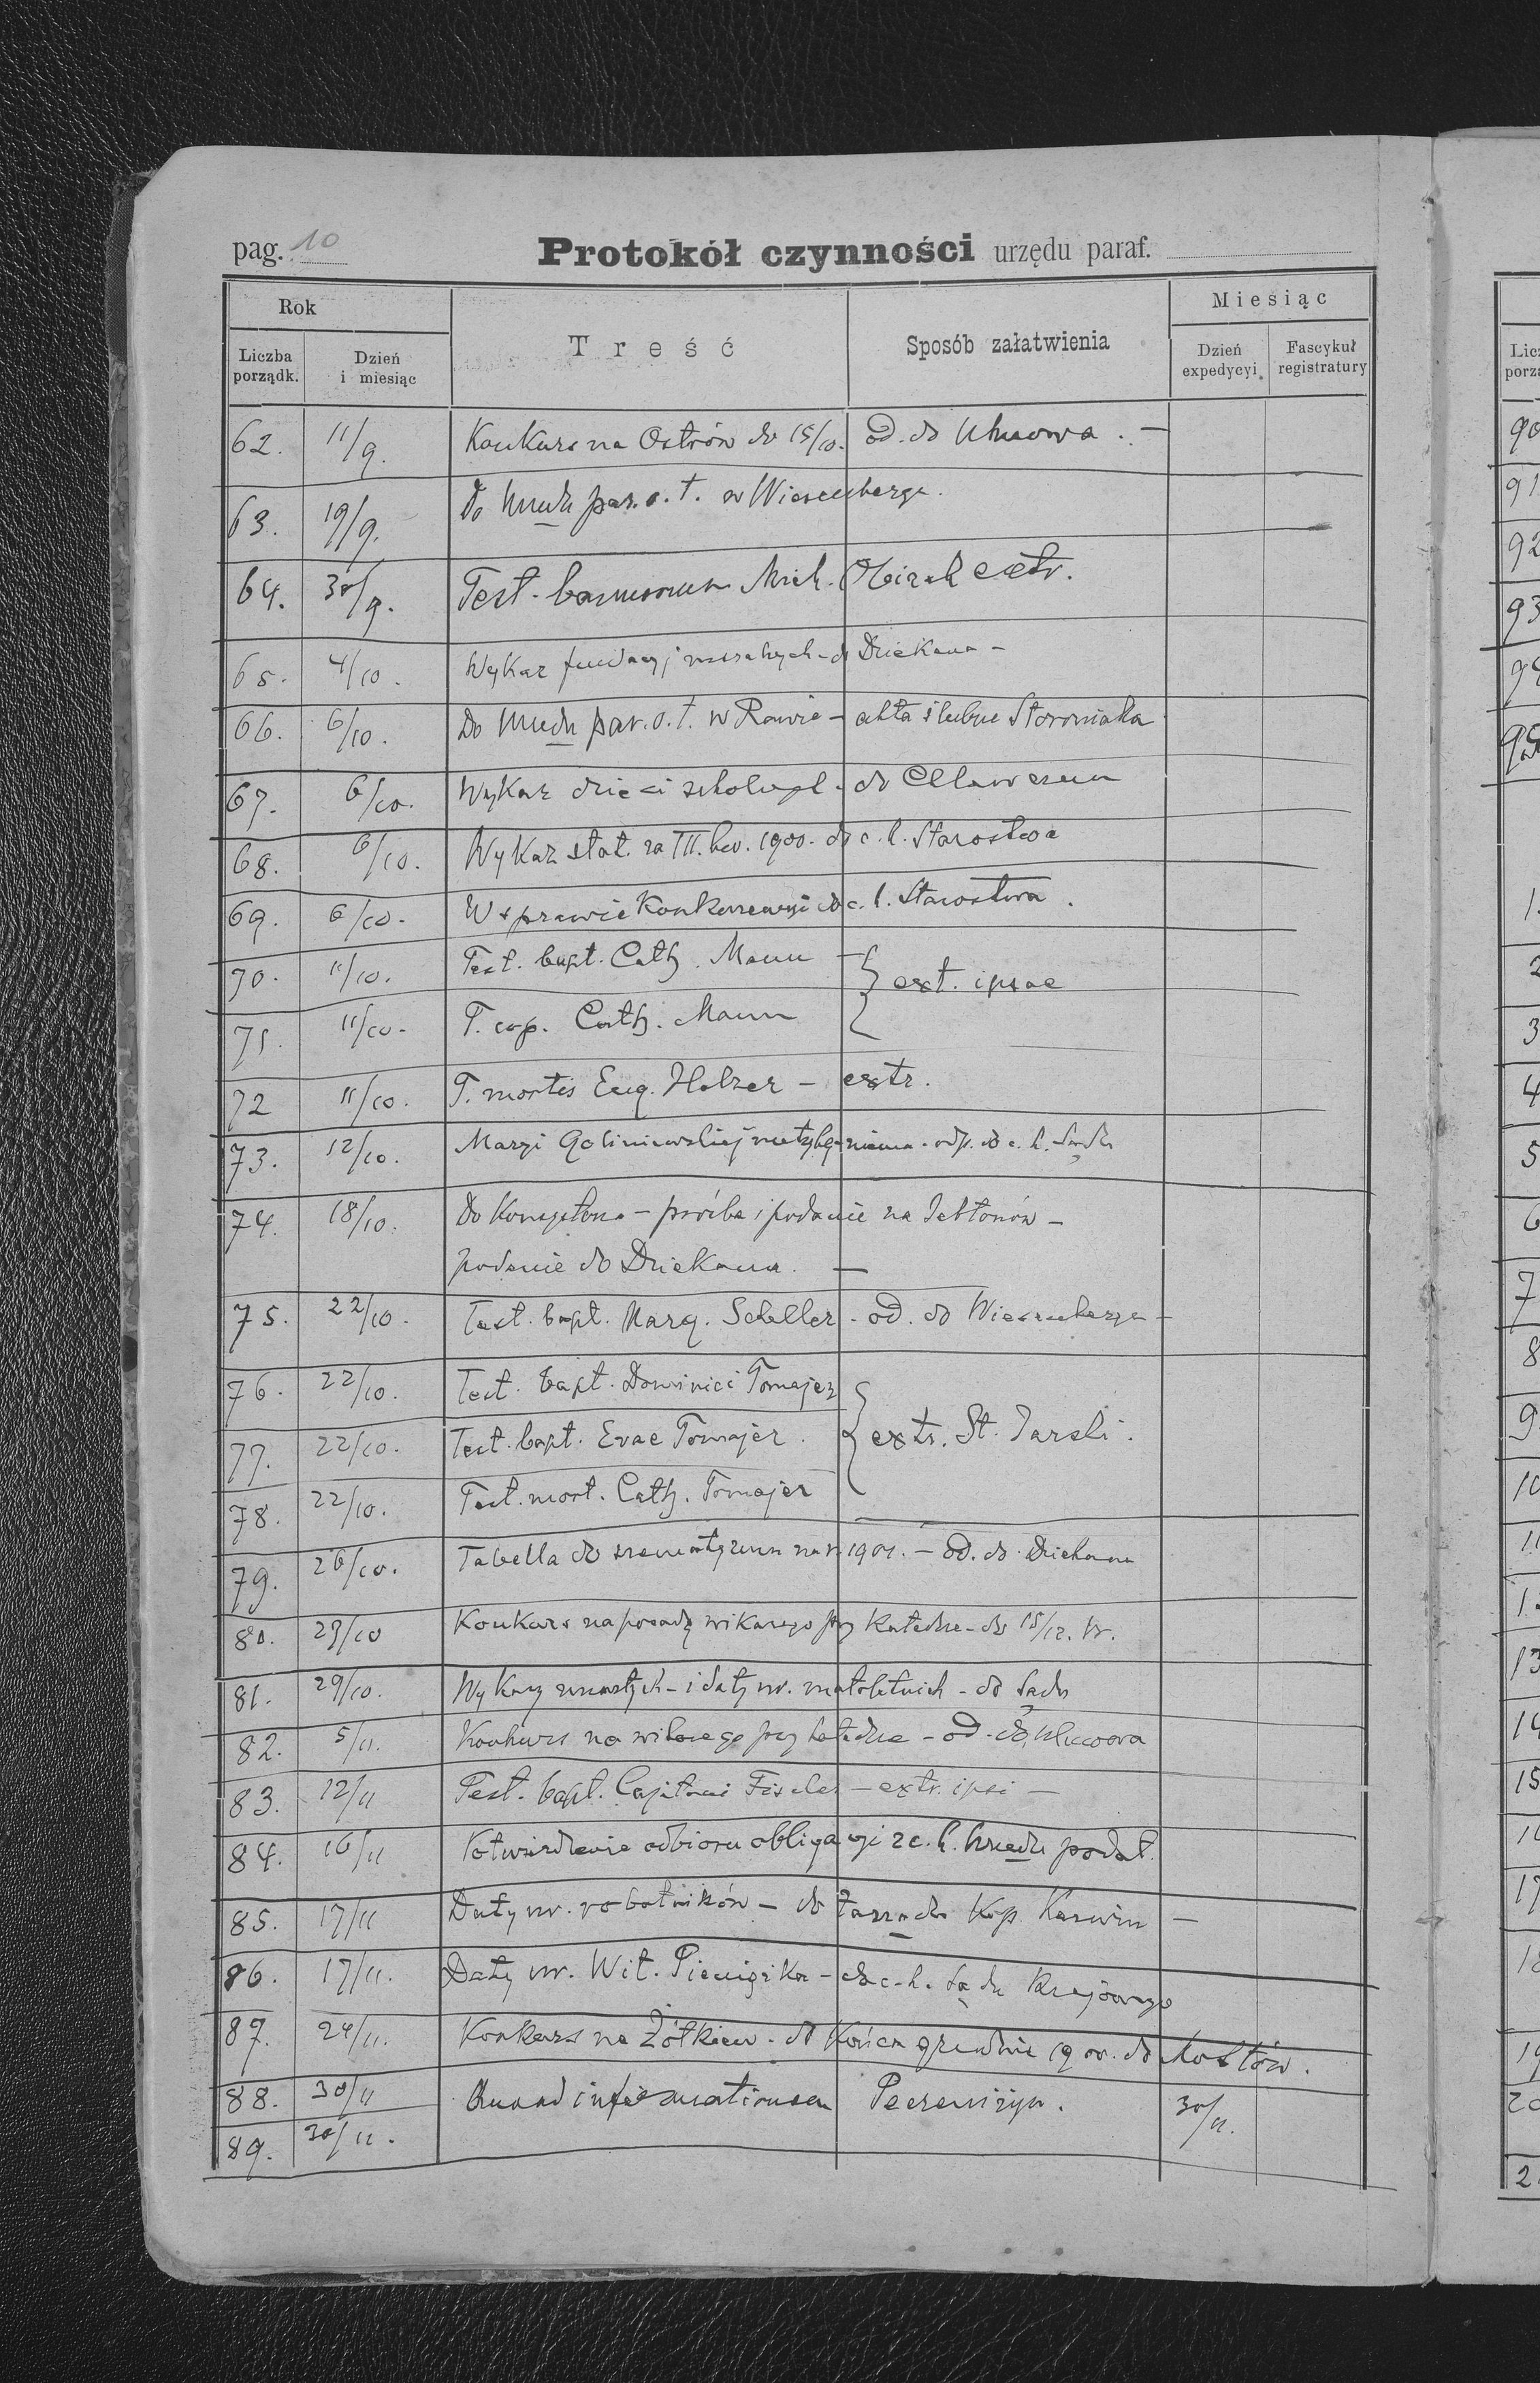 pag. 10 Protokół czynności urzędu paraf.
Rok Treść Sposób załatwienia Miesiąc
Liczba porządk. Dzień i miesiąc Dzień expedycyi Fascykuł registratury
62. 11/9. Konkurs na Ostrów do 15/10. od. do Uhnowa. -
63. 19/9. Do Urzędu par. o. ł. w Wiesenberga.
64. 30/9. Test. bannorum Mich. extr.
65. 4/10. Wykaz fundacyj mszalnych - do Dziekana -
66. 6/10. Do Urzędu par. o. ł. w Rawie - akta ślubne Storoniaka
67. 6/10. Wykaz dzieci szkolnych - do
68. 6/10. Wykaz stat. za III. kw. 1900. do c. k. Starostwa
69. 6/10. W sprawie Konkurencyi do c. k. Starostwa.
70. 11/10. Test. bapt. Cath. Mann - } ext. ipsae
71. 11/10. T. cop. Cath. Mann
72 11/10. T. mortis Eug. Holzer - extr.
73. 12/10. Maryi Goliniewskiej metryki niema - odp. do c. k. Sądu
74. 18/10. Do Konsystorza - prośba i podanie na Jabłonów -
podanie do Dziekana. -
75. 22/10. Test. bapt. Marg. Scheller - od. do Wiesenberga -
76. 22/10. Test. bapt. Dominici Tomajer
77. 22/10. Test. bapt. Evae Tomajer. } extr. St. Jarski.
78. 22/10. Test. mort. Cath. Tomajer
79. 26/10. Tabella do szematyzmu na r. 1901. - od. do Dziekana
80. 29/10 Konkurs na posadę wikarego przy Katedrze - do 15/12. br.
81. 29/10. Wykazy zmarłych - i daty ur. małoletnich - do Sądu
82. 5/11. Konkurs na wikarego przy katedrze - od. do Uhnowa
83. 12/11 Test. bapt. Fischer - extr. ipsi -
84. 16/11 Potwierdzenie odbioru obligacyi z c. k. Urzędu podat.
85. 17/11 Daty ur. robotników - do Zarządu Kop. Karwin -
86. 17/11. Daty ur. Wit. Pieniążka - do c. k. Sądu Krajowego
87. 24/11. Konkurs na Żółkiew - do końca grudnia 1900. do Mostów.
88. 30/11 30/11.
89. 30/11.